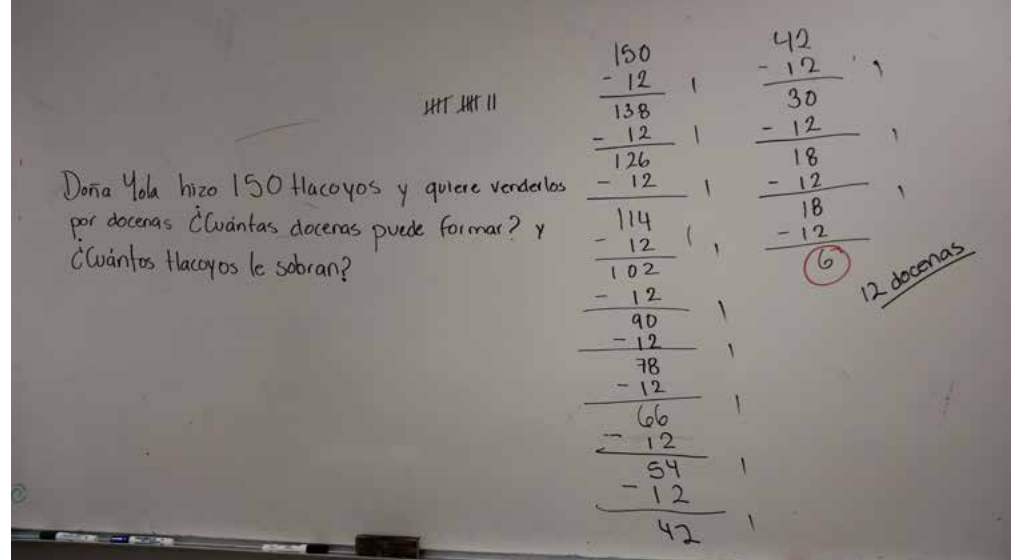 Doña Yola hizo 150 tlacoyos y quiere venderlos
por docenas ¿Cuántas docenas puede formar? y
¿Cuántos tlacoyos le sobran?
150
- 12
138
- 12
126
- 12
114
- 12
102
- 12
90
- 12
78
- 12
66
- 12
54
- 12
42
42
- 12
30
- 12
18
- 12
18
- 12
6
12 docenas